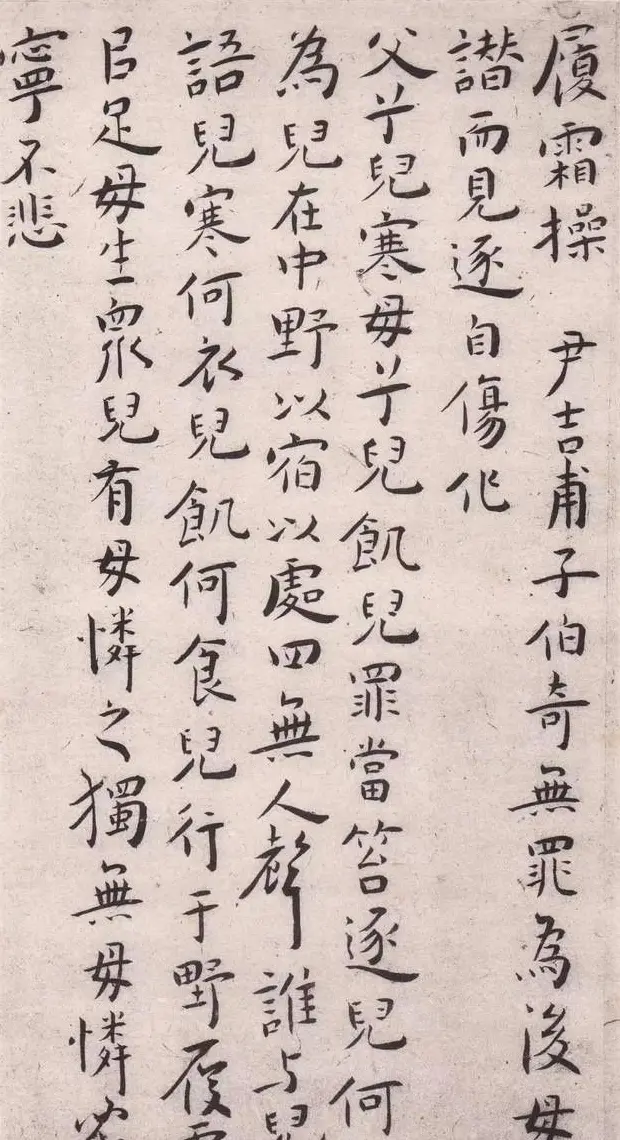 履霜操 尹吉甫子伯奇無罪為後母
譖而見逐自傷作
父兮兒寒母兮兒飢兒罪當笞逐兒何
為兒在中野以宿以處四無人聲誰与兒
語兒寒何衣兒飢何食兒行于野履
以足母生眾兒有母憐之獨無母憐
寧不悲